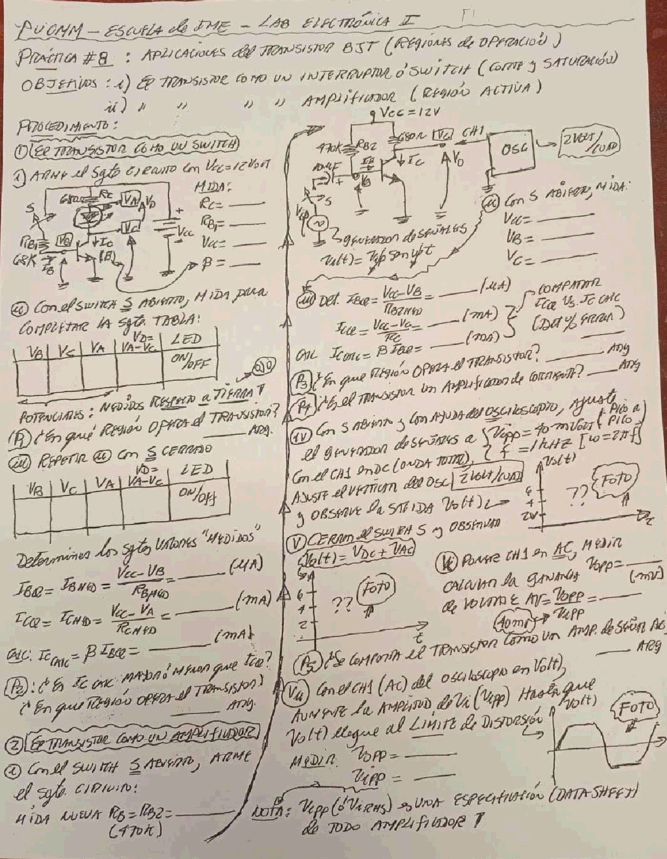 PUCMM - ESCUELA de IME - LAB ELECTRÓNICA I
PRÁCTICA #8 : APLICACIONES del TRANSISTOR BJT (REGIONES de OPERACIÓN)
OBJETIVOS : i) El TRANSISTOR COMO UN INTERRUPTOR ó SWITCH (CORTE y SATURACIÓN)
ii) " " " " AMPLIFICADOR (REGIÓN ACTIVA)
PROCEDIMIENTO:
① El TRANSISTOR COMO UN SWITCH
i) ARME el sgte CIRCUITO con VCC=12VOLT
MIDA:
RC = ___
RB1 = ___
VCC = ___
β = ___
S
680Ω RC
VA
VD
VC
VCC
RB1
68K
VB
IC
IB
ii) Con el SWITCH S ABIERTO, MIDA para
COMPLETAR LA sgte. TABLA:
VB VC VA VD= VA-VC LED ON/OFF
POTENCIALES: MEDIDOS RESPECTO a TIERRA
P1) ¿En qué REGIÓN OPERA el TRANSISTOR?
___ ARG.
iii) REPETIR ii con S CERRADO
VB VC VA VD= VA-VC LED ON/OFF
Determinar los sgtes VALORES "MEDIDOS"
IBQ = IBMED = VCC-VB / RBMED = ___ (μA)
ICQ = ICMED = VCC-VA / RCMED = ___ (mA)
CALC: ICCALC = β IBQ = ___ (mA)
P2) ¿Es IC CALC MAYOR ó MENOR que ICQ?
¿En que REGIÓN OPERA el TRANSISTOR?
___ ARG.
2) El TRANSISTOR COMO UN AMPLIFICADOR
i) Con el SWITCH S ABIERTO, ARME
el sgte. CIRCUITO:
MIDA NUEVA RB = RB2 = ___
(470K)
VCC=12V
470K
RB2
680Ω
VC
CH1
OSC
2VOLT/CUAD
IB
IC
VO
S
GENERADOR de SEÑALES
Vi(t) = Vip sen wt
ii) Con S ABIERTO, MIDA:
VCC = ___
VB = ___
VC = ___
iii) Det. IBQ = VCC-VB / RB2MED = ___ (μA)
ICQ = VCC-VC / RC = ___ (mA)
CALC ICCALC = β IBQ = ___ (mA)
COMPARAR
ICQ VS. IC CALC
(Det % ERROR)
P3) ¿En que REGIÓN OPERA el TRANSISTOR? ___ ARG
P4) ¿Es el TRANSISTOR UN AMPLIFICADOR de CORRIENTE? ___ ARG
IV) Con S ABIERTO y con AYUDA del OSCILOSCOPIO, AJUSTE
el GENERADOR de SEÑALES a Vipp = 40 mVolt (PICO a PICO)
f = 1kHz [w=2πf]
Con el CH1 en DC (ONDA TOTAL)
AJUSTE el VERTICAL del OSC 2VOLT/CUAD
y OBSERVE la SALIDA Vo(t)
Vo(t)
6
4
2
??
FOTO
t
V) CERRAR el SWITCH S y OBSERVAR
Vo(t) = VDC + VAC
8
6
4
2
??
FOTO
t
VI) PONER CH1 en AC, MEDIR
VOPP = ___ (mV)
CALCULAR la GANANCIA
de VOLTAJE AV = VOPP / Vipp = ___
40mV
P5) ¿Se COMPORTA el TRANSISTOR COMO UN AMP. de SEÑAL AC?
___ ARG
VII) Con el CH1 (AC) del OSCILOSCOPIO en Vo(t),
AUMENTE la AMPLITUD de Vi (Vipp) HASTA que
Vo(t) llegue al LIMITE de DISTORSIÓN
MEDIR. VOPP = ___
Vipp = ___
Vo(t)
FOTO
t
NOTA: Vipp (ó ViRMS) es UNA ESPECIFICACIÓN (DATA SHEET)
de TODO AMPLIFICADOR